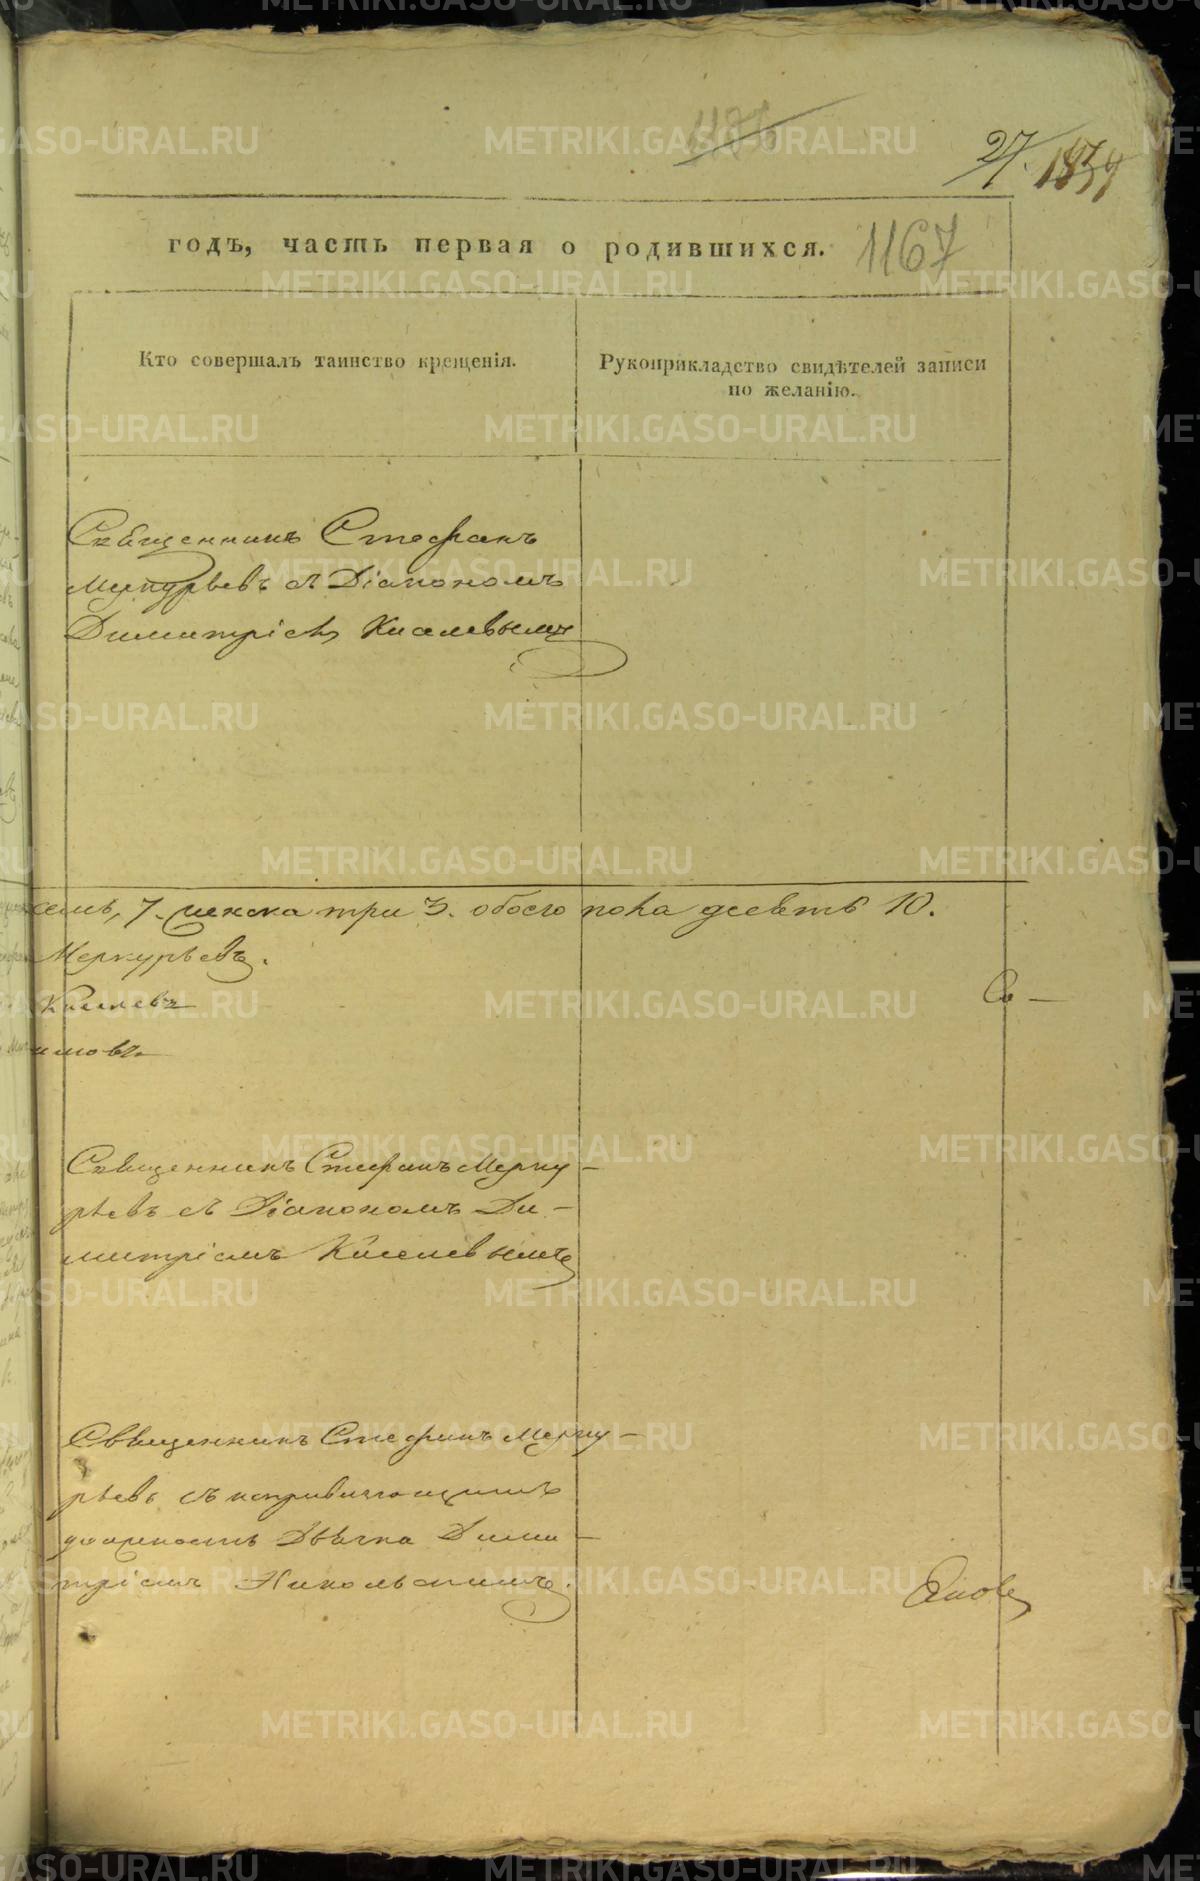 27
1167
годъ, часть первая о родившихся.
Кто совершалъ таинство крещенія.
Рукоприкладство свидѣтелей записи
по желанію.
Священникъ Стефанъ
Меркурьевъ съ Діакономъ
Димитріемъ Киселевымъ
семь, 7. женска три 3. обоего пола десеть 10.
Меркурьевъ.
Киселевъ
Священникъ Стефанъ Мерку-
рьевъ съ Діакономъ Ди-
митріемъ Киселевымъ
Священникъ Стефанъ Мерку-
рьевъ съ исправляющимъ
должность Дьячка Дими-
тріемъ Никольскимъ.
METRIKI.GASO-URAL.RU